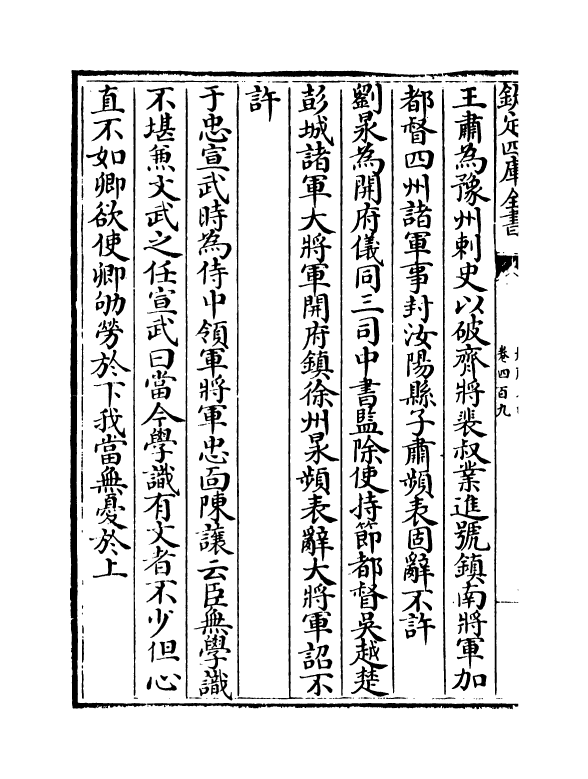 欽定四庫全書
卷四百九
王肅為豫州刺史以破齊將裴叔業進號鎮南將軍加
都督四州諸軍事封汝陽縣子肅頻表固辭不許
劉昶為開府儀同三司中書監除使持節都督吳越楚
彭城諸軍大將軍開府鎮徐州昶頻表辭大將軍詔不
許
于忠宣武時為侍中領軍將軍忠面陳讓云臣無學識
不堪兼文武之任宣武曰當今學識有文者不少但心
直不如卿欲使卿劬勞於下我當無憂於上